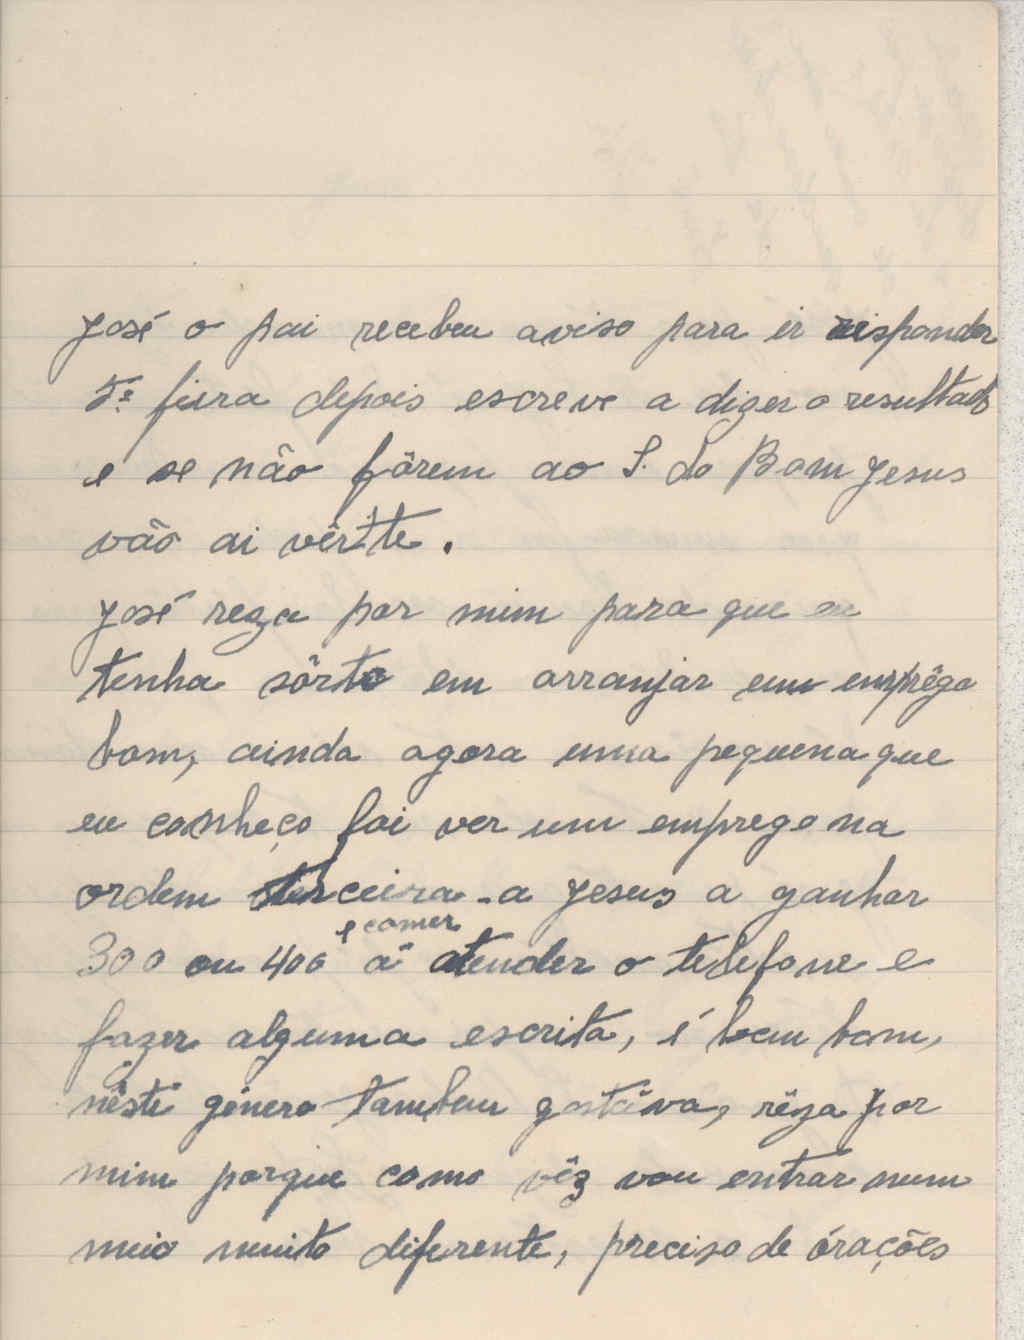 José o pai recebeu aviso para ir responder
5ª feira depois escreve a dizer o resultado
e se não fôrem ao S. do Bom Jesus
vão ai vêr-te.
José reza por mim para que eu
tenha sôrte em arranjar um emprêgo
bom, ainda agora uma pequena que
eu conheço foi ver um emprego na
ordem terceira - a Jesus a ganhar
e comer
300 ou 400 á atender o telefone e
fazer alguma escrita, é bem bom,
nêste género tambem gostáva, rêza por
mim porque como vêz vou entrar num
meio muito diferente, preciso de órações